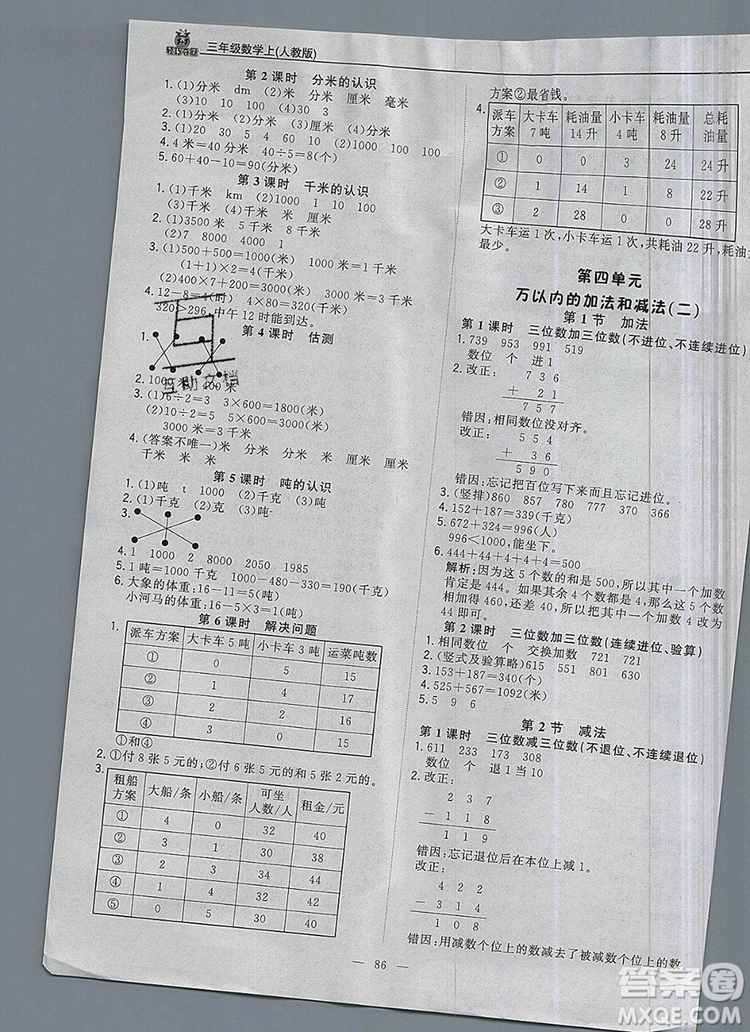 轻巧夺冠 三年级数学上(人教版)
第2课时 分米的认识
1. (1)分米 dm (2)米 分米 厘米 毫米
(3)10 10 100 (4)10 30 3
2. (1)分米 (2)厘米
3. (1)20 30 5 4 60 (2)1000 100 100
4. 4米=40分米 40÷5=8(个)
5. 60+40-10-10=80(厘米)
第3课时 千米的认识
1. (1)千米 km (2)1000 1 10 100
(3)千米 (4)千米 厘米 千米 千米
2. (1)2000 5000 3000 8 6
(2)7 8000 4000 1
3. (1)500+500=1000(米) 1000米=1千米
(1+1)×2=4(千米)
(2)400×7+200=3000(米) 3000米=3千米
4. 12-8=4(时) 4×80=320(千米)
320>296,中午12时能到达。
第4课时 估测
1.
互助文档
2. 1000米 100米
3. (1)6÷2=3 3×600=1800(米)
(2)6÷2=3 1000×3=3000(米)
3000米=3千米
4. (答案不唯一)米 分米 分米 厘米 厘米
千米 米 米 米
第5课时 吨的认识
1. (1)吨 t 1000 (2)千克 (3)吨
2. (1)千克 (2)千克 (3)吨
3.
4. 1 1000 2 8000 2050 1985
5. 1吨=1000千克 1000÷100=10(个)
6. 大象的体重:16-11=5(吨)
小河马的体重:16-11-3=2(吨)
第6课时 解决问题
1.
派车方案 大卡车5吨 小卡车3吨 运菜吨数
① 0 5 15
② 1 4 17
③ 2 2 16
④ 3 0 15
①和④
2. ①付8张5元的;②付6张5元的和5张2元的。
3.
租船方案 大船/条 小船/条 可坐人数/人 租金/元
① 4 0 32 40
② 3 2 32 40
③ 2 4 32 40
④ 1 6 32 40
⑤ 0 8 32 40
方案②最省钱。
4.
派车方案 大卡车7吨 耗油量14升 小卡车4吨 耗油量8升 总耗油量
① 0 0 3 24 24升
② 1 14 1 8 22升
③ 2 28 0 0 28升
大卡车运1次,小卡车运1次,共耗油22升,耗油最少。
第四单元
万以内的加法和减法(二)
第1节 加法
第1课时 三位数加三位数(不进位、不连续进位)
1. 739 953 991 519
数位 个 进1
2. 改正: 7 3 6
+ 2 1
7 5 7
错因:相同数位没对齐。
改正: 5 5 4
+ 3 6
5 9 0
错因:忘记把百位写下来而且忘记进位。
3. (竖排)695 860 827 777 370 366
4. 152+187=339(千克)
5. 672+324=996(人)
996<1000,能坐下。
6. 444+44+4+4+4=500
解析:因为这5个数的和是500,所以其中一个加数肯定是444,还差56,所以其中一个加数是44,所以
第2课时 三位数加三位数(连续进位、验算)
1. 相同数位 个 交换加数 721 721
2. (竖式及验算略)615 551 801 630
3. 152+187=339(千克)
4. 525+567=1092(米)
5. 5 9 6
第2节 减法
第1课时 三位数减三位数(不退位、不连续退位)
1. 611 233 173 308
数位 个 退1当10
2. 改正: 2 3 7
- 1 1 8
1 1 9
错因:忘记退位后在本位上减1。
改正: 4 2 2
- 3 1 4
1 0 8
错因:用减数个位上的数减去了被减数个位上的数。
— 86 —
答案圈
MXQE.COM